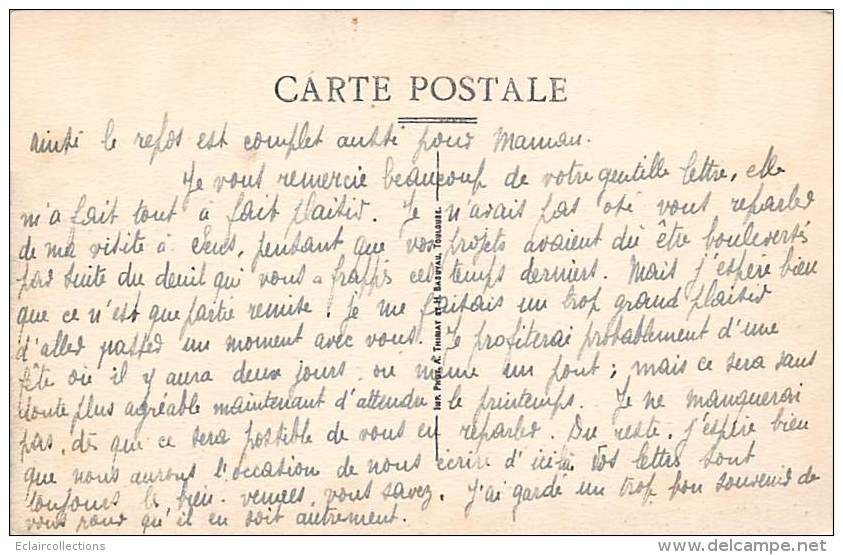 CARTE POSTALE
ainsi le repos est complet aussi pour Maman.
Je vous remercie beaucoup de votre gentille lettre, elle
m'a fait tout à fait plaisir. Je n'avais pas osé vous reparler
de ma visite à Sens, pensant que vos projets avaient dû être bouleversés
par suite du deuil qui vous a frappés ces temps derniers. Mais j'espère bien
que ce n'est que partie remise. Je me faisais un trop grand plaisir
d'aller passer un moment avec vous. Je profiterai probablement d'une
fête où il y aura deux jours, ou même un pont ; mais ce sera sans
doute plus agréable maintenant d'attendre le printemps. Je ne manquerai
pas, dès que ce sera possible de vous en reparler. Du reste, j'espère bien
que nous aurons l'occasion de nous écrire d'ici là. Vos lettres sont
toujours les bien-venues, vous savez. J'ai gardé un trop bon souvenir de
vous pour qu'il en soit autrement.
IMP. PHOT. A. THIRIAT ET H. BASUYAU, TOULOUSE.
Eclaircollections
www.delcampe.net